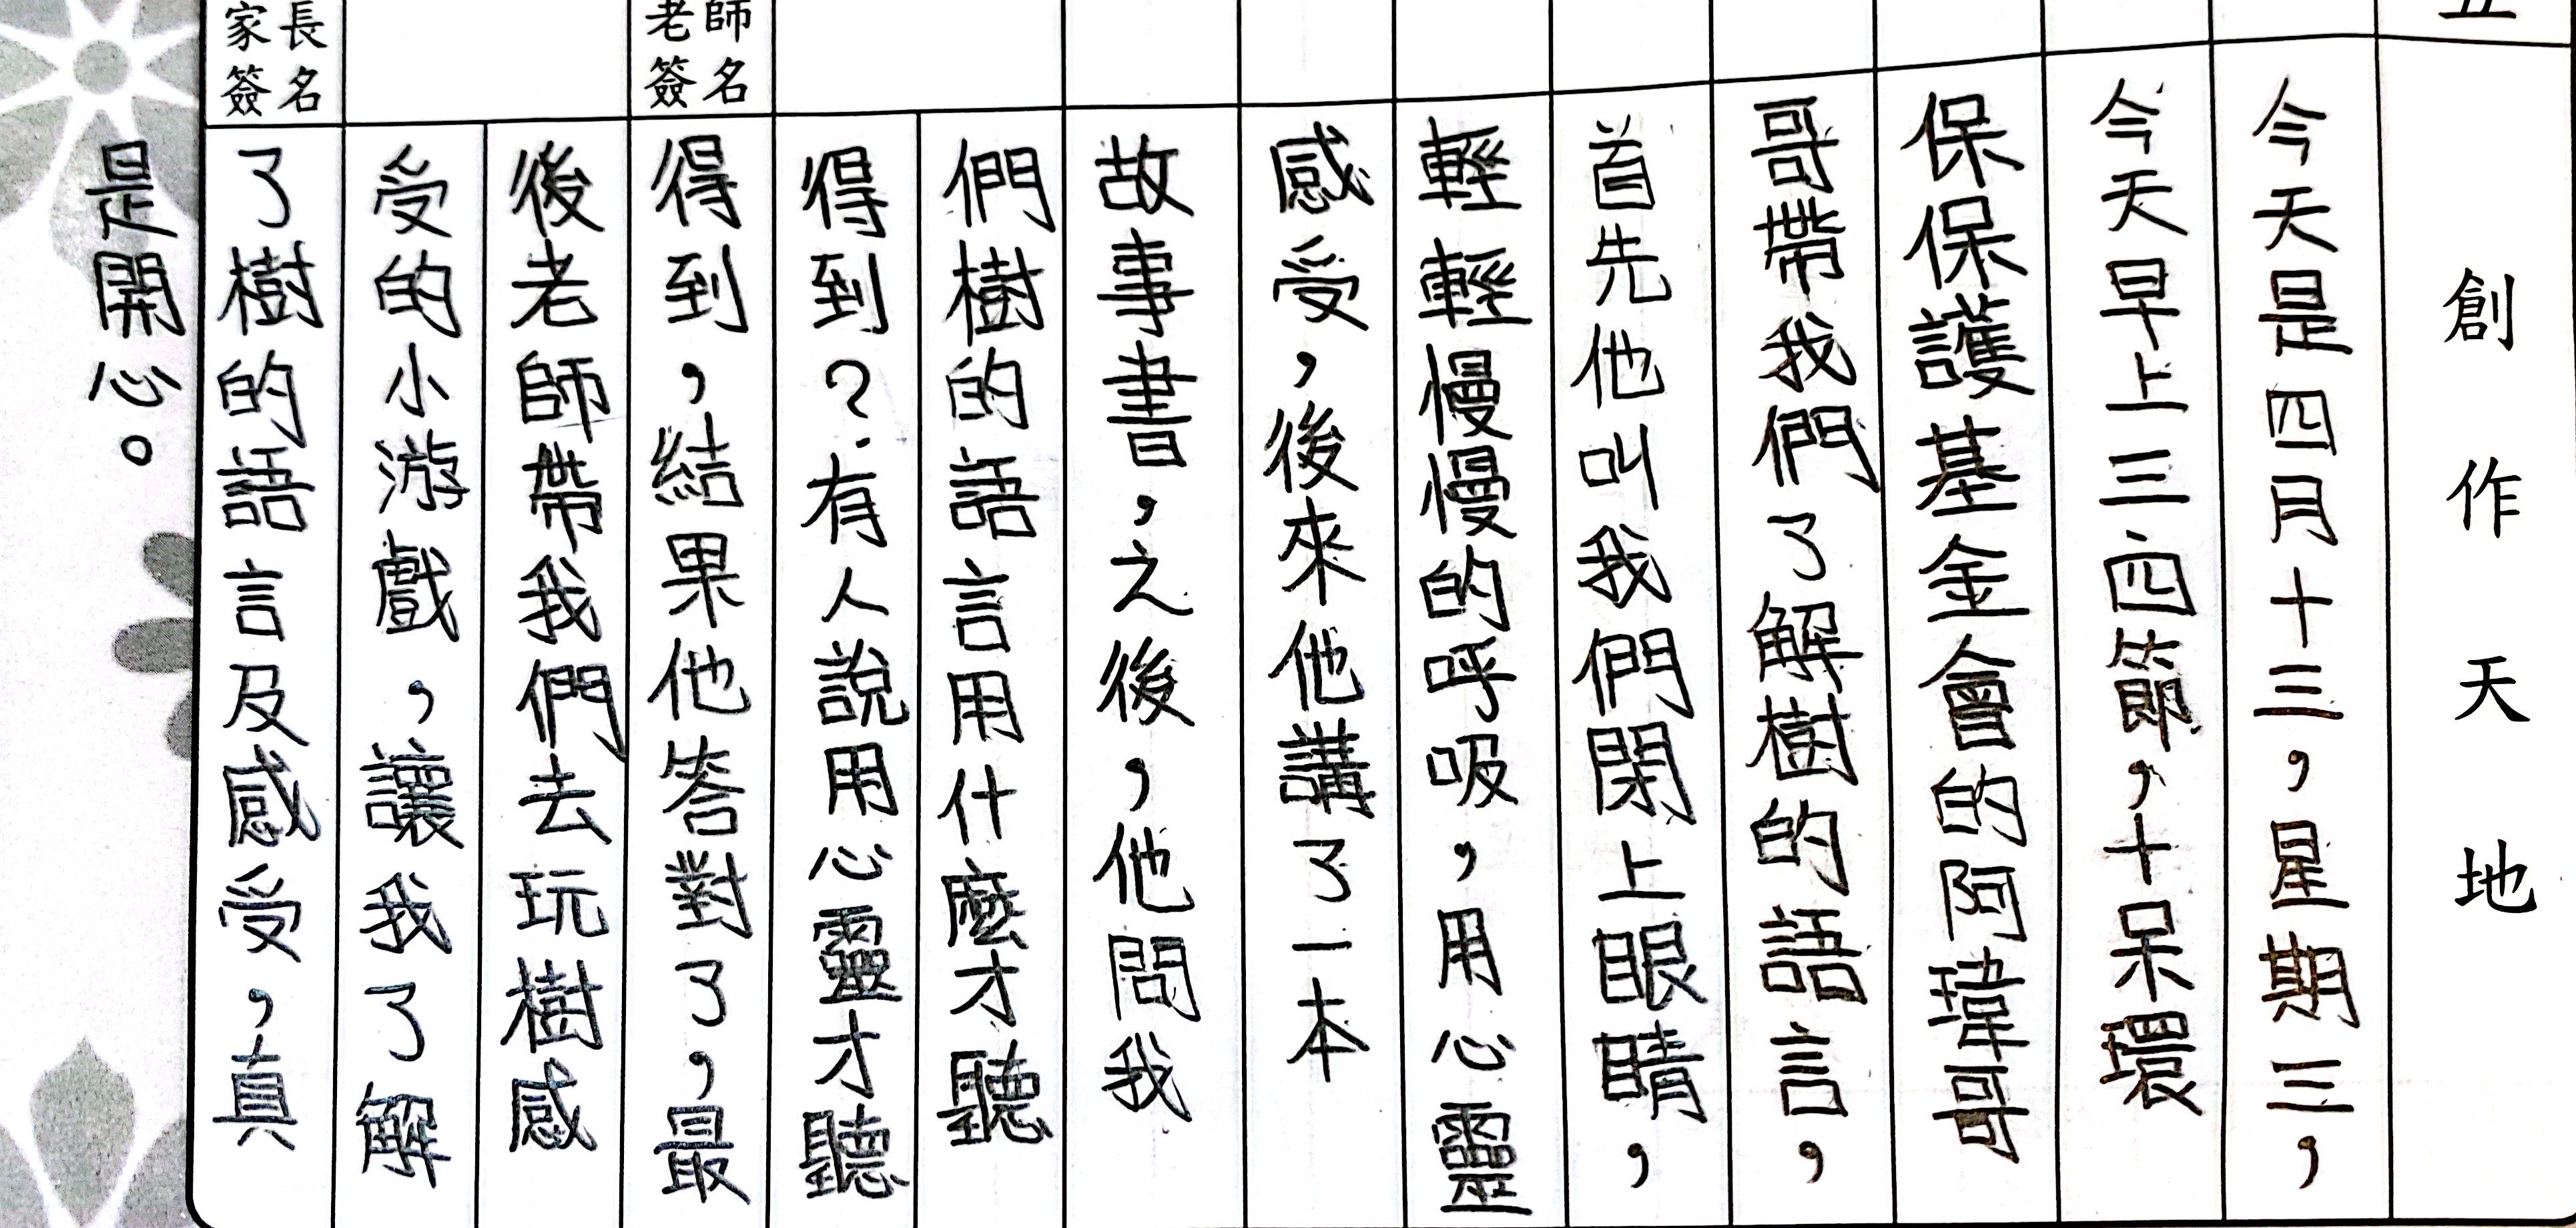 創作天地
今天是四月十三，星期三，
今天早上三四節，十呆環
保保護基金會的阿瑋哥
哥帶我們了解樹的語言，
首先他叫我們閉上眼睛，
輕輕慢慢的呼吸，用心靈
感受，後來他講了一本
故事書，之後，他問我
們樹的語言用什麼才聽
得到？有人說用心靈才聽
得到，結果他答對了，最
後老師帶我們去玩樹感
受的小游戲，讓我了解
了樹的語言及感受，真
是開心。
老師簽名
家長簽名